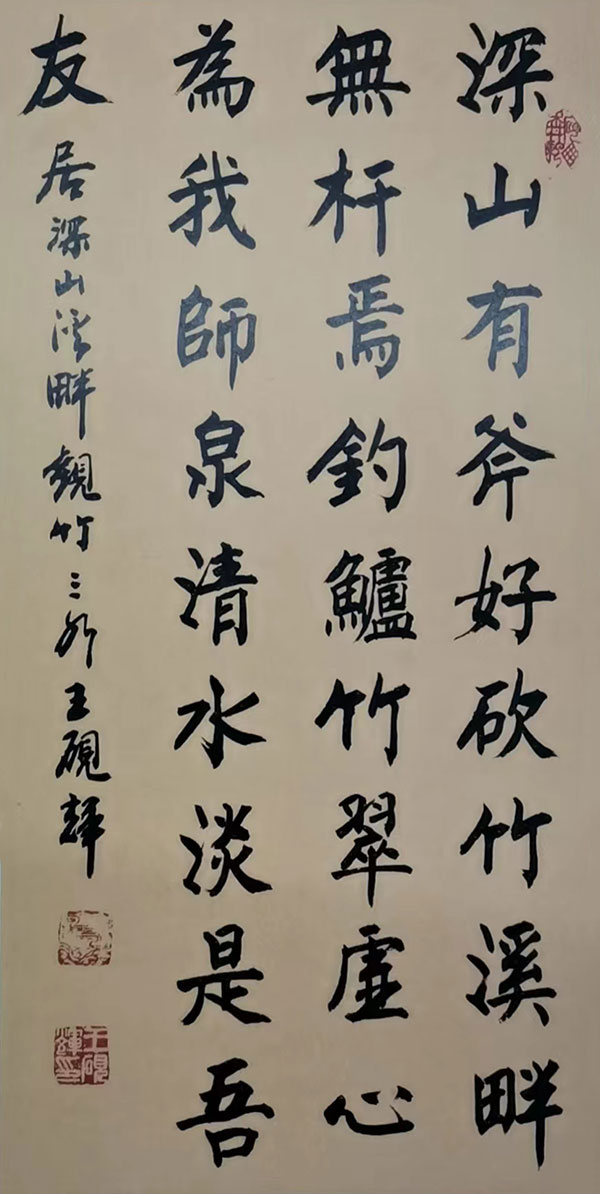 深山有斧好砍竹溪畔
無杆焉釣鱸竹翠虛心
為我師泉清水淡是吾
友
居深山溪畔觀竹
王硯輝
王硯輝印